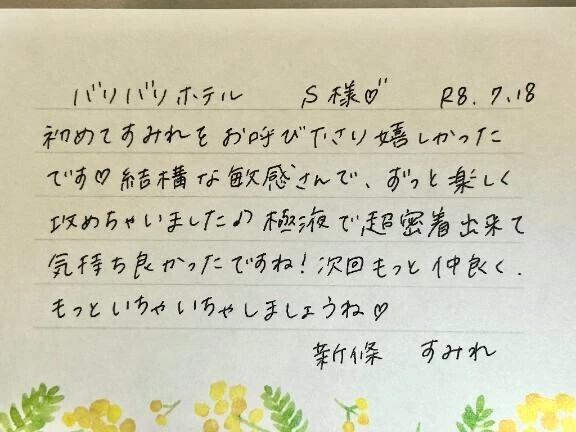 バリバリホテル S様♡ R8.7.18
初めてすみれをお呼び下さり嬉しかった
です♡結構な敏感さんで、ずっと楽しく
攻めちゃいました♪極液で超密着出来て
気持ち良かったですね!次回もっと仲良く、
もっといちゃいちゃしましょうね♡
新條 すみれ